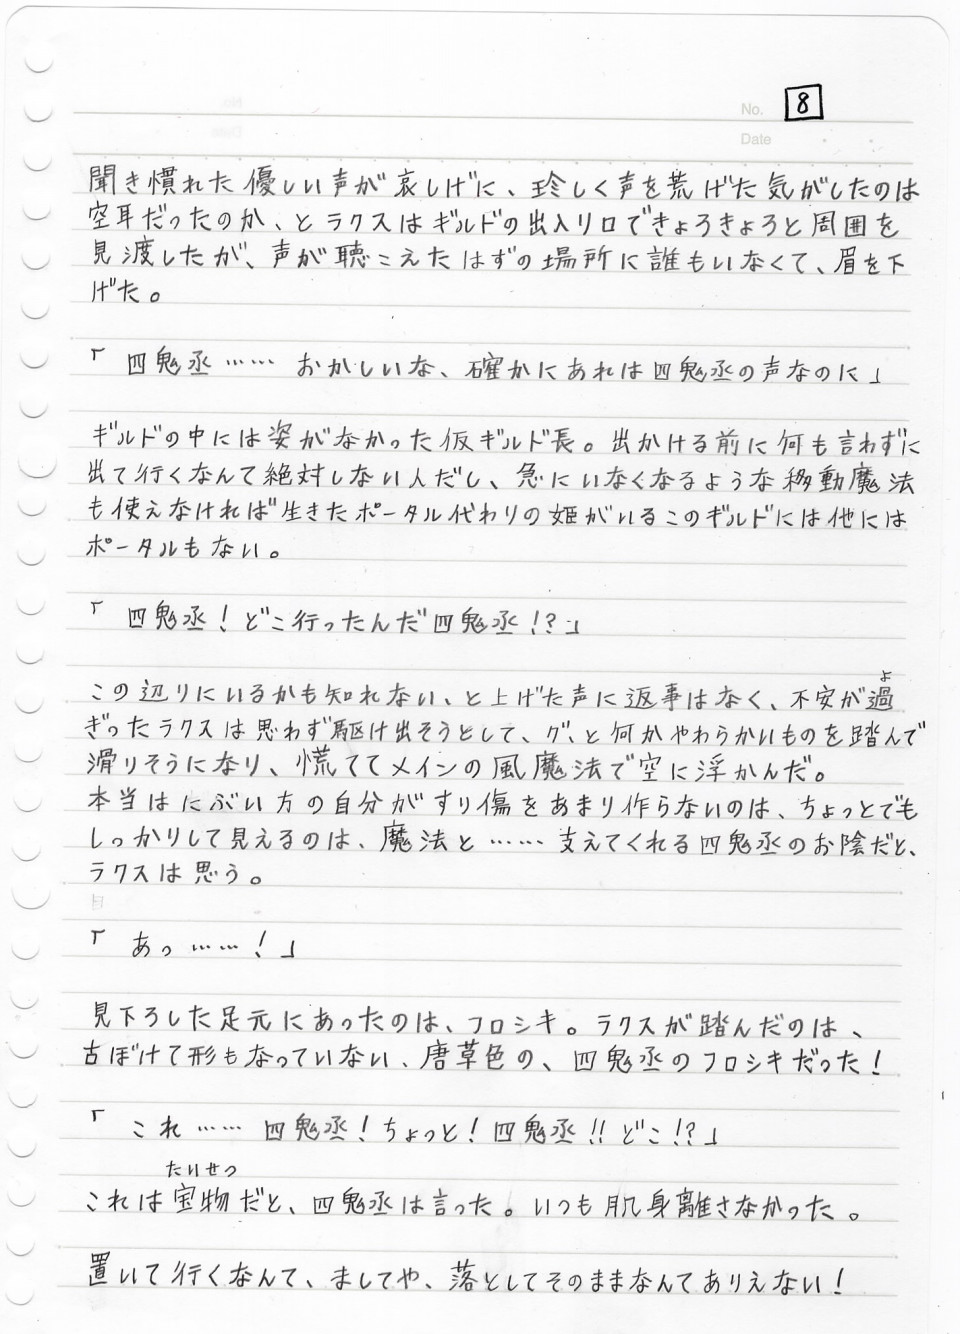 No. 8
Date
聞き慣れた優しい声が哀しげに、珍しく声を荒げた気がしたのは
空耳だったのか、とラクスはギルドの出入り口できょろきょろと周囲を
見渡したが、声が聴こえたはずの場所に誰もいなくて、眉を下
げた。
「四鬼丞…… おかしいな、確かにあれは四鬼丞の声なのに」
ギルドの中には姿がなかった仮ギルド長。出かける前に何も言わずに
出て行くなんて絶対しない人だし、急にいなくなるような移動魔法
も使えなければ生きたポータル代わりの姫がいるこのギルドには他には
ポータルもない。
「四鬼丞!どこ行ったんだ四鬼丞!?」
よ
この辺りにいるかも知れない、と上げた声に返事はなく、不安が過
ぎったラクスは思わず駆け出そうとして、グ、と何かやわらかいものを踏んで
滑りそうになり、慌ててメインの風魔法で空に浮かんだ。
本当はにぶい方の自分がすり傷をあまり作らないのは、ちょっとでも
しっかりして見えるのは、魔法と……支えてくれる四鬼丞のお陰だと、
ラクスは思う。
「あっ……!」
見下ろした足元にあったのは、フロシキ。ラクスが踏んだのは、
古ぼけて形もなっていない、唐草色の、四鬼丞のフロシキだった!
「これ…… 四鬼丞!ちょっと!四鬼丞!!どこ!?」
たいせつ
これは宝物だと、四鬼丞は言った。いつも肌身離さなかった。
置いて行くなんて、ましてや、落としてそのままなんてありえない!